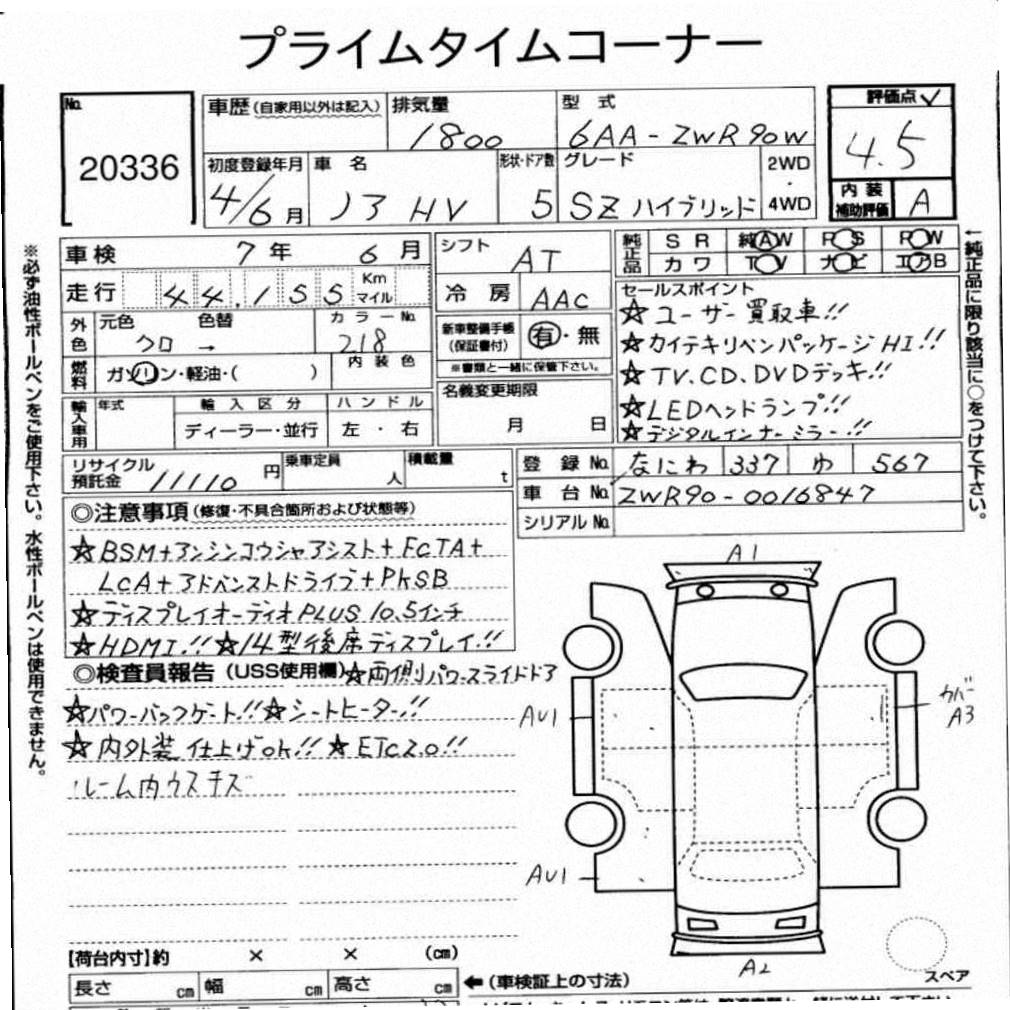 プライムタイムコーナー
No. 20336
車歴(自家用以外は記入) 排気量 1800 型式 6AA-ZWR90W 評価点✓ 4.5
初度登録年月 4/6月 車名 ノア HV 形状・ドア数 5 グレード SZ ハイブリッド 2WD・4WD
内装補助評価 A
車検 7年 6月 シフト AT 純正品 SR 純AW PS PW
カワ TV ナビ エアB
走行 44,155 Km マイル 冷房 AAC セールスポイント
外色 元色 クロ 色替 → カラーNo. 218 新車整備手帳(保証書付) 有・無
※書類と一緒に保管下さい。
☆ユーザー買取車!!
☆カイテキリベンパッケージHI!!
☆TV.CD.DVDデッキ!!
☆LEDヘッドランプ!!
☆デジタルインナーミラー!!
燃料 ガソリン・軽油・( ) 内装色
名義変更期限 月 日
輸入車用 年式 輸入区分 ディーラー・並行 ハンドル 左・右
リサイクル預託金 11110円 乗車定員 人 積載量 t
登録No. なにわ 337 ゆ 567
車台No. ZWR90-0016847
シリアルNo.
◎注意事項(修復・不具合箇所および状態等)
☆BSM+アンシンコウシャアシスト+FCTA+
LCA+アドバンストドライブ+PKSB
☆ディスプレイオーディオPLUS 10.5インチ
☆HDMI!! ☆14型後席ディスプレイ!!
◎検査員報告(USS使用欄)☆両側パワースライドドア
☆パワーバックゲート!!☆シートヒーター!!
☆内外装仕上げok!! ☆ETC2.0!!
ルーム内ウスキズ
A1
AU1
カバーA3
AU1
A2
スペア
【荷台内寸】約 × × (cm)
長さ cm 幅 cm 高さ cm ←(車検証上の寸法)
※必ず油性ボールペンをご使用下さい。水性ボールペンは使用できません。
←純正品に限り該当に○をつけて下さい。